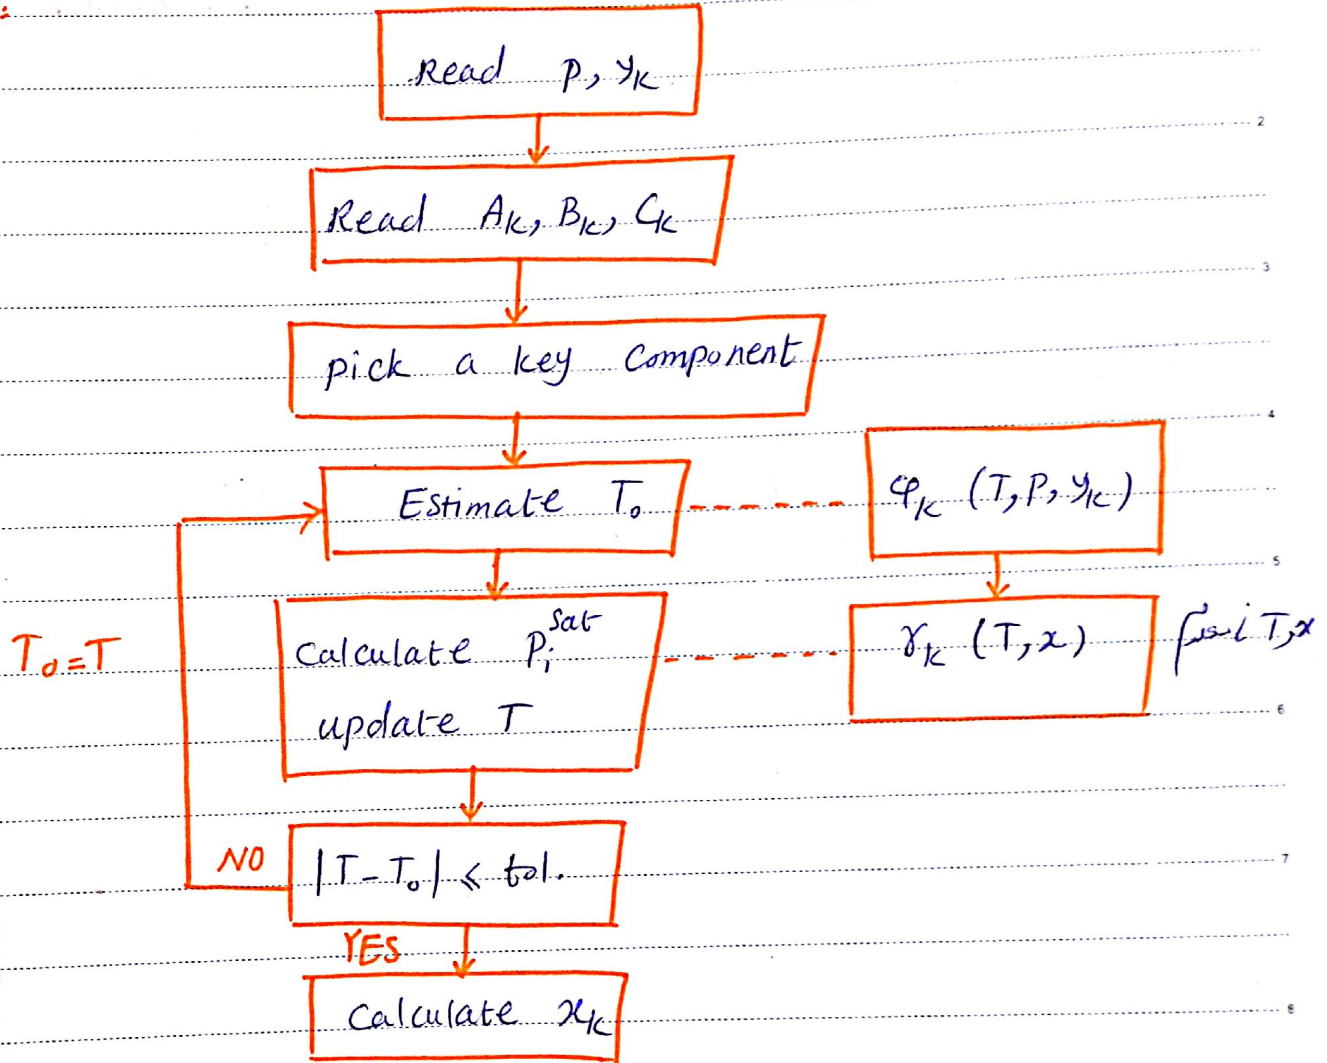 Read P, yₖ
2
Read Aₖ, Bₖ, Cₖ
3
pick a key component
4
Estimate T₀
φₖ (T, P, yₖ)
5
Calculate Pᵢˢᵃᵗ
update T
γₖ (T, x)
T, x
T₀=T
6
|T-T₀| ≤ tol.
NO
7
YES
Calculate xₖ
8